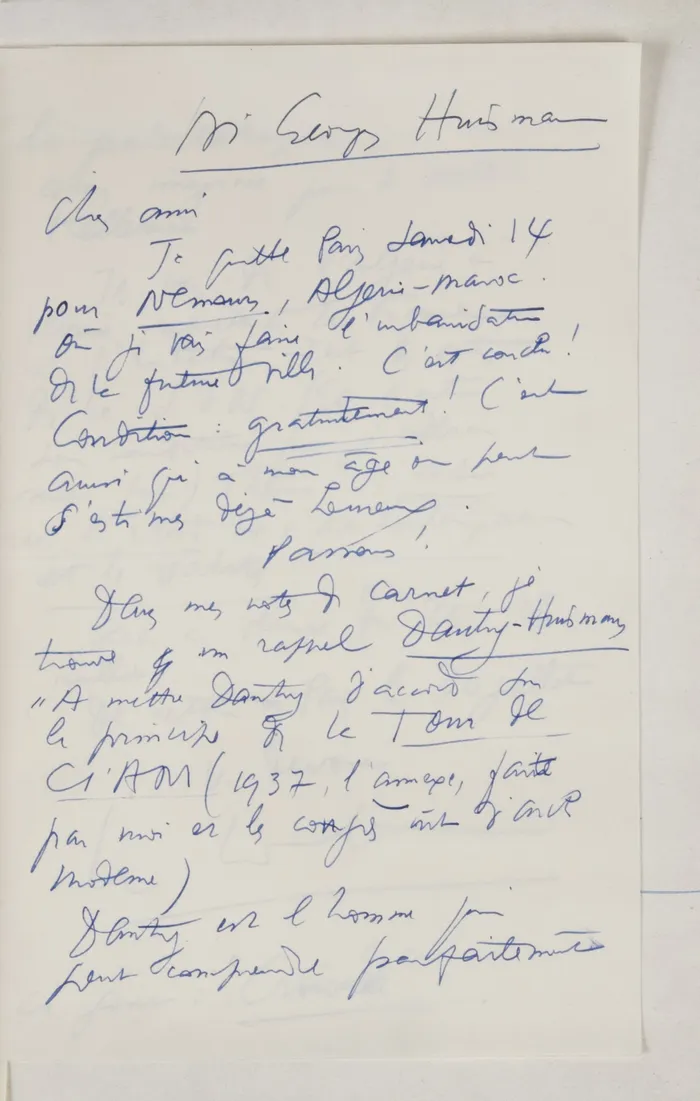 Mr Georges Huisman
Cher ami
Je quitte Paris Samedi 14
pour Nemours, Algérie-Maroc.
où je vais faire l'urbanisation
de la future ville. C'est conclu!
Condition : gratuitement! C'est
ainsi qu'à mon âge on peut
s'estimer déjà heureux.
Passons!
Dans mes notes de carnet, je
trouve un rappel Dautry-Huisman
"A mettre Dautry d'accord sur
le principe de la Tour de
CIAM (1937, l'annexe, faite
par moi et les congrès int d'arch
moderne)
Dautry est l'homme qui
peut comprendre parfaitement